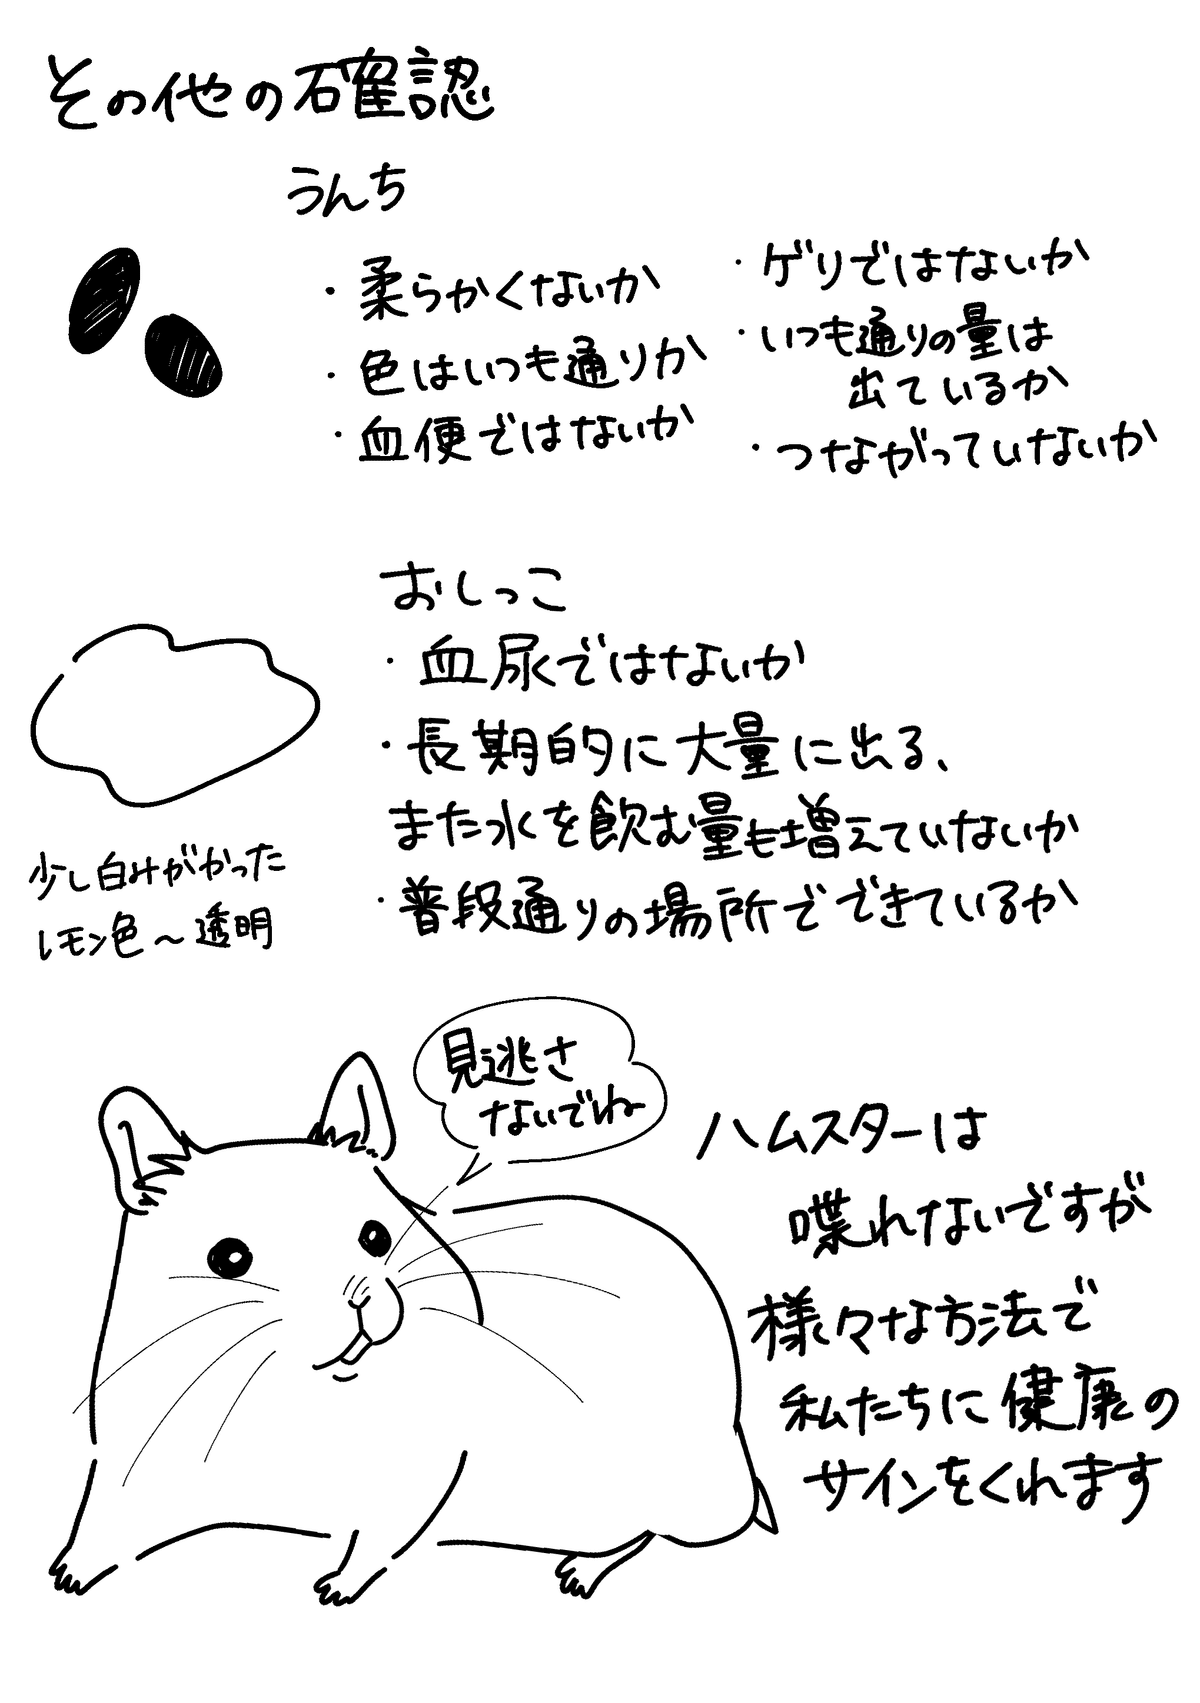 その他の確認
うんち
・柔らかくないか
・色はいつも通りか
・血便ではないか
・ゲリではないか
・いつも通りの量は
出ているか
・つながっていないか
おしっこ
・血尿ではないか
・長期的に大量に出る、
また水を飲む量も増えていないか
・普段通りの場所でできているか
少し白みがかった
レモン色～透明
見逃さ
ないでね
ハムスターは
喋れないですが
様々な方法で
私たちに健康の
サインをくれます